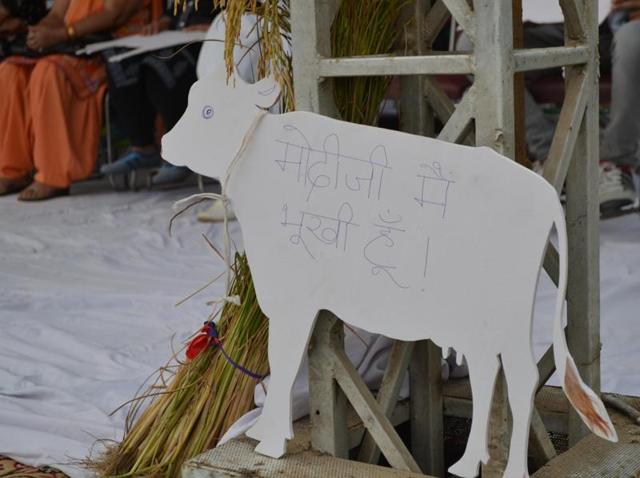 मोदीजी मैं
भूखी हूँ !